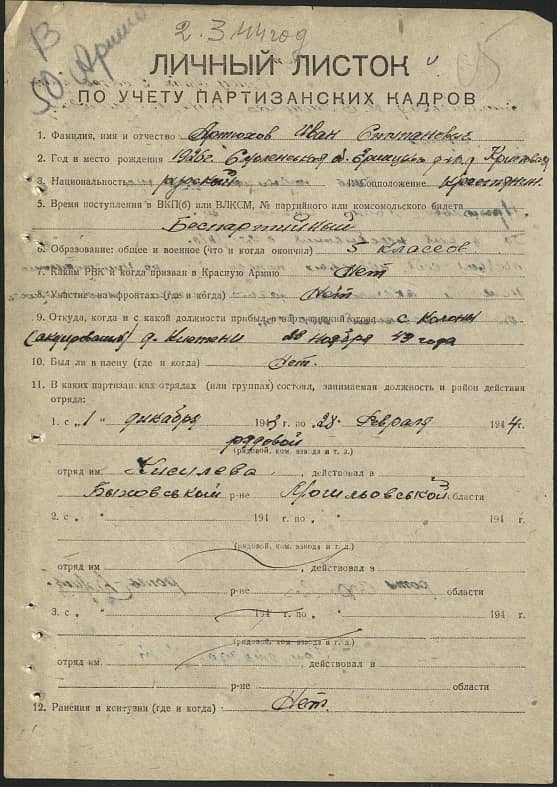 2.3.44 год
В
50. Армию
ЛИЧНЫЙ ЛИСТОК
ПО УЧЕТУ ПАРТИЗАНСКИХ КАДРОВ
1. Фамилия, имя и отчество Артюхов Иван
2. Год и место рождения 1926 г. Смоленская
3. Национальность русский 4. Соцположение крестьянин
5. Время поступления в ВКП(б) или ВЛКСМ, № партийного или комсомольского билета
Беспартийный
6. Образование: общее и военное (что и когда окончил) 5 классов
7. Каким РВК и когда призван в Красную Армию Нет
8. Участие на фронтах (где и когда) Нет
9. Откуда, когда и с какой должности прибыл в партизанский отряд с
д. 28 ноября 43 года
10. Был ли в плену (где и когда) Нет.
11. В каких партизанских отрядах (или группах) состоял, занимаемая должность и район действия
отряда:
1. с „1 " декабря 1943 г. по „28 " Февраля 1944 г.
рядовой
(рядовой, ком. взвода и т. д.)
отряд им. Кисилева, действовал в
Быховський р-не Могильовськой области
2. с „ " 194 г. по „ " 194 г.
(рядовой, ком. взвода и т. д.)
отряд им , действовал в
р-не области
3. с „ " 194 г. по „ " 194 г.
(рядовой, ком. взвода и т. д.)
отряд им. действовал в
р-не области
12. Ранения и контузии (где и когда) Нет.